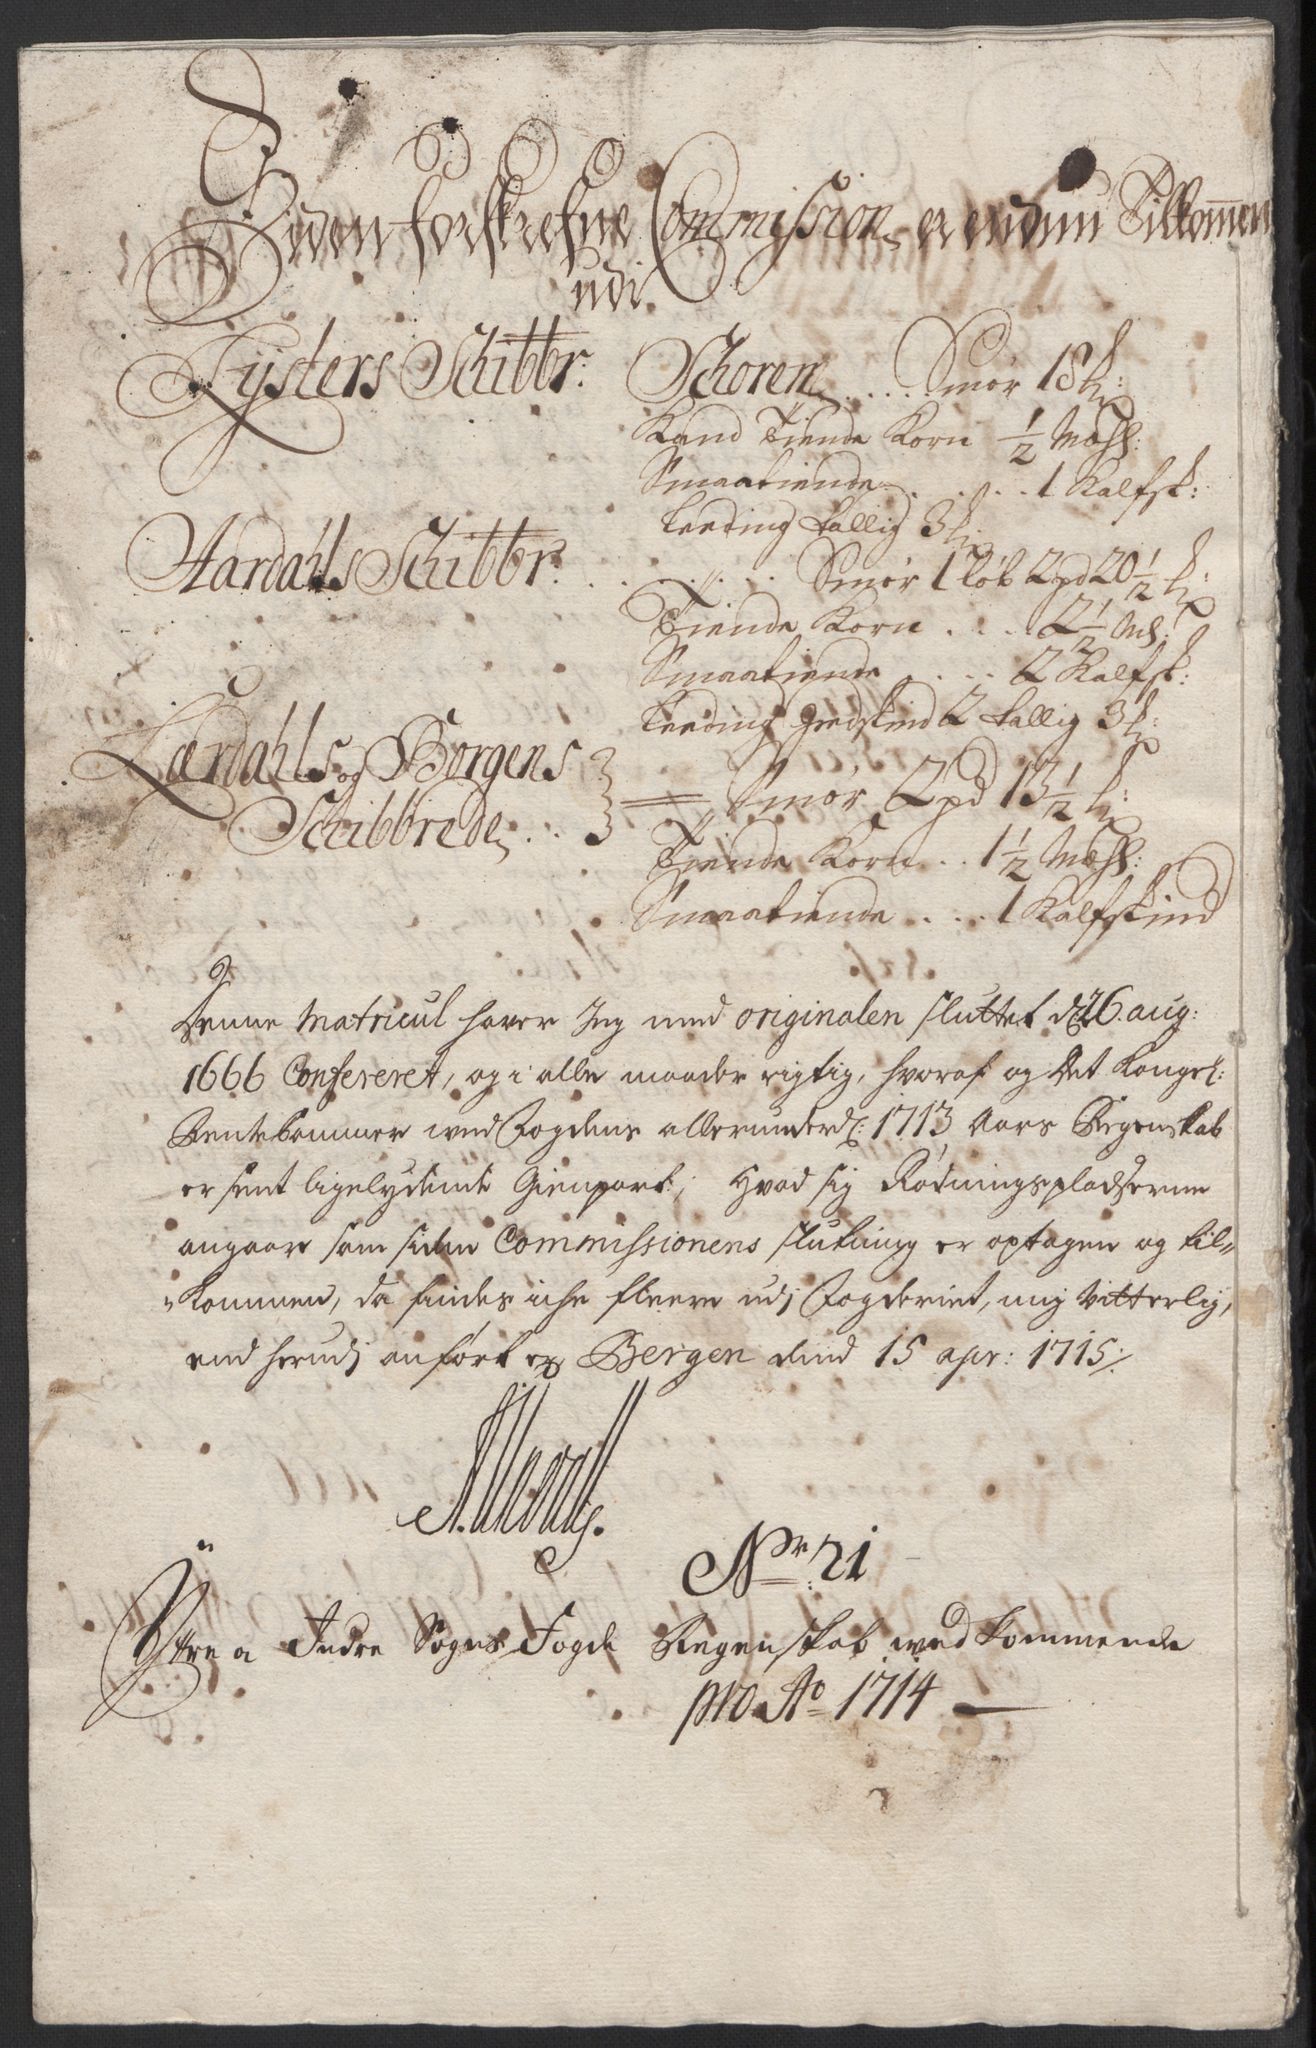 Siden forskrefne Commission er endnu Tilkommen
udi
Lysters Schibbr: Schoren .... Smør 18 ℔:
Land Tiende Korn ½ Mæhl:
Smaatiende ..... 1 Kalfsk:
Leeding Tallig 3 ℔:
Aardahls Schibbr: ...... Smør 1 Løb 2 pd 20½ ℔:
Tiende Korn .... 2½ Ml:
Smaatiende .... 2 Kalfsk:
Leeding Giedskind 2 Tallig 3 ℔:
Lærdahls og Borgens
Schibbrede .. = Smør 2 pd 13½ ℔:
Tiende Korn .. 1½ Mæhl:
Smaatiende .... 1 Kalfskind
Denne Matricul haver Jeg med originalen sluttet d 26 aug:
1666 Confereret, og i alle maader rigtig, hvoraf og det Kongel:
Rentekammer wed Fogdens allerunderd: 1713 Aars Regenskab
er sent ligelydende Gienpart; Hvad sig Rødningspladserne
angaar som siden Commissionens slutning er optagen og til-
-kommen, da findes iche fleere udj Fogderiet, mig vitterlig,
end herudj anført er Bergen dend 15 apr: 1715 /:
Nr: 21
Yttre a Indre Sogns Fogde Regenskab wedkommende
pro Ao 1714